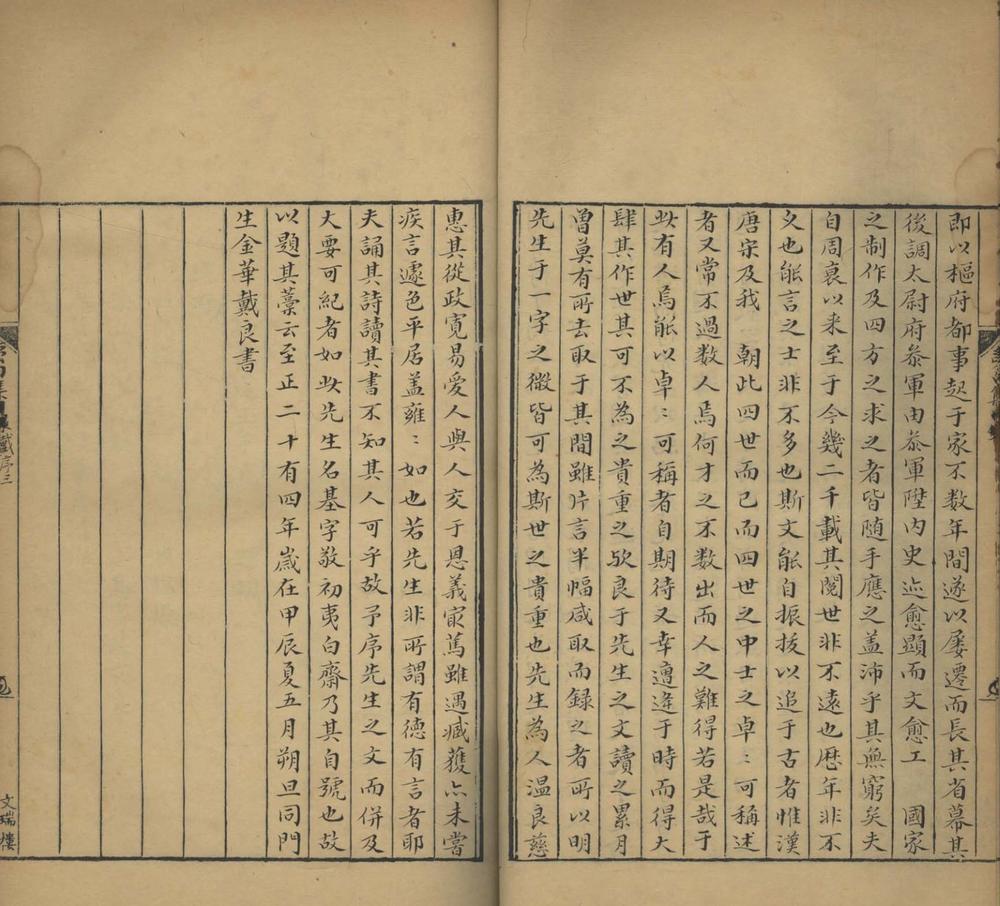 即以樞府都事起于家不数年間遂以屡遷而長其省幕其
後調太尉府叅軍由叅軍陞内史迹愈顯而文愈工　國家
之制作及四方之求之者皆随手應之盖沛乎其無窮矣夫
自周衰以来至于今幾二千載其閱世非不遠也歴年非不
乆也能言之士非不多也斯文能自振拔以追于古者惟漢
唐宋及我　朝此四世而已而四世之中士之卓〻可稱述
者又常不過数人焉何才之不数出而人之難得若是哉于
此有人焉能以卓〻可稱者自期待又幸遭逢于時而得大
肆其作世其可不為之貴重之欤良于先生之文讀之累月
曽莫有所去取于其間雖片言半幅咸取而録之者所以明
先生于一字之微皆可為斯世之貴重也先生為人温良慈
惠其從政寛易愛人與人交于恩義㝡篤雖遇臧獲亦未嘗
疾言遽色平居盖雍〻如也若先生非所謂有德有言者耶
夫誦其詩讀其書不知其人可乎故予序先生之文而併及
大要可紀者如此先生名基字敬初夷白齋乃其自號也故
以題其藁云至正二十有四年歳在甲辰夏五月朔旦同門
生金華戴良書
序三
文瑞樓